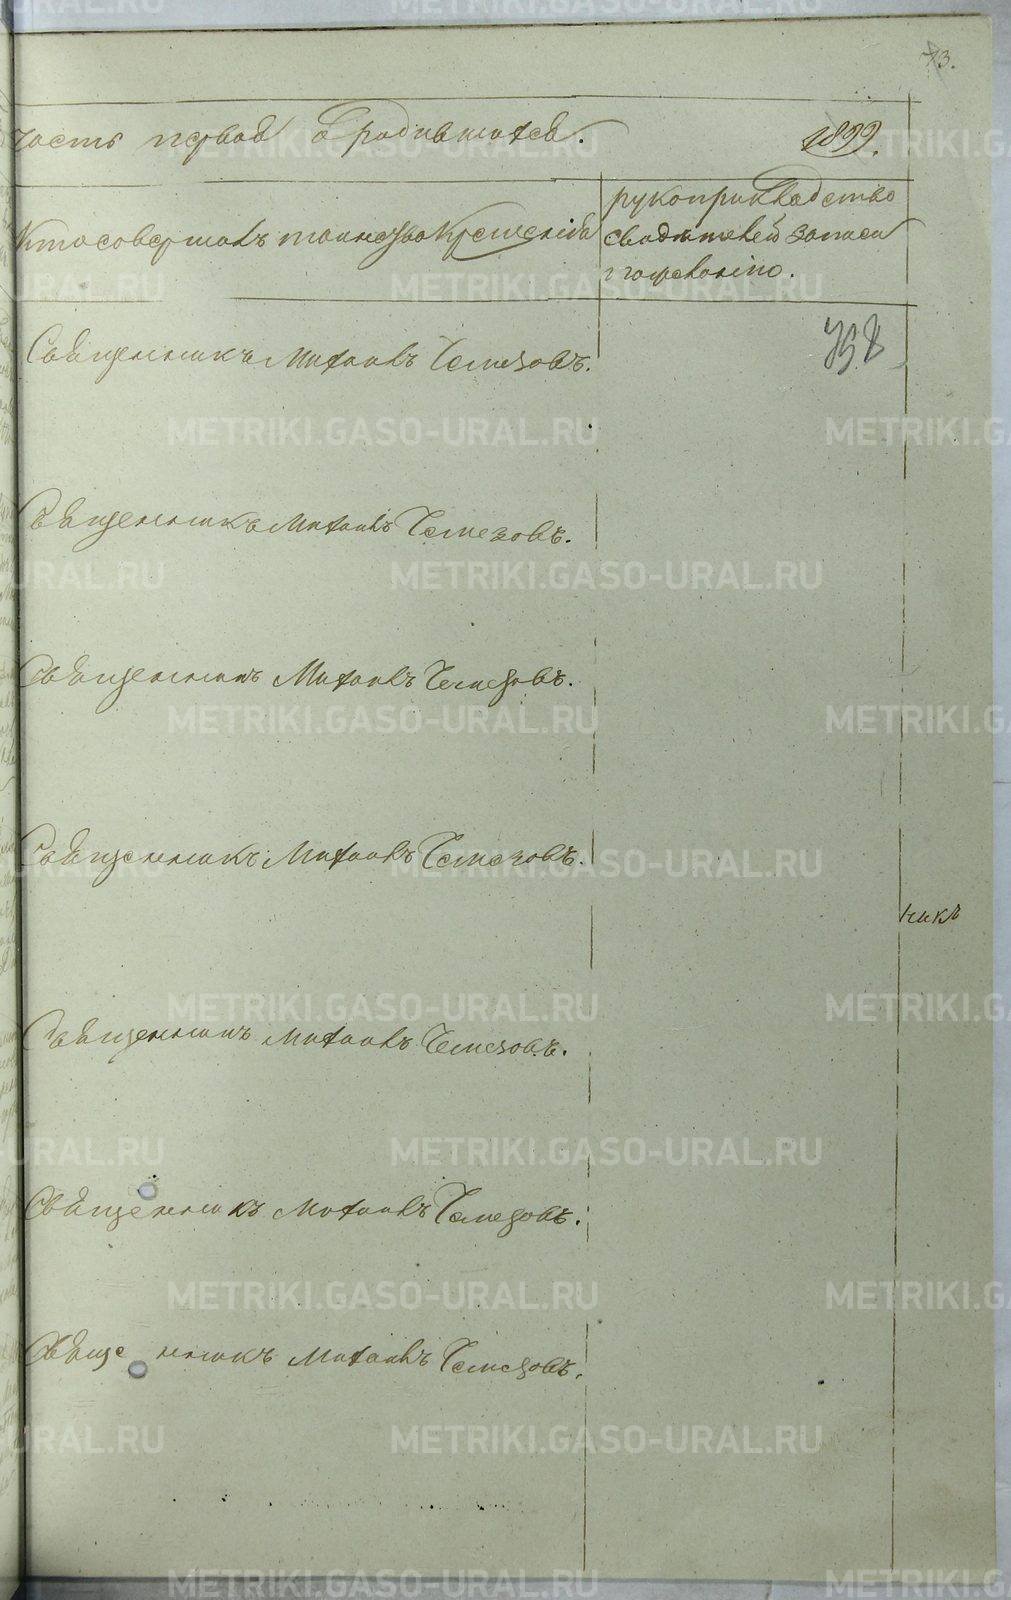 73.
часть первая о родившихся.
1899.
Кто совершалъ таинство Крещенія
рукоприкладство
свидѣтелей записи
по желанію.
Священникъ Михаилъ Чемезовъ.
Священникъ Михаилъ Чемезовъ.
Священникъ Михаилъ Чемезовъ.
Священникъ Михаилъ Чемезовъ.
никъ
Священникъ Михаилъ Чемезовъ.
Священникъ Михаилъ Чемезовъ.
Священникъ Михаилъ Чемезовъ.
METRIKI.GASO-URAL.RU